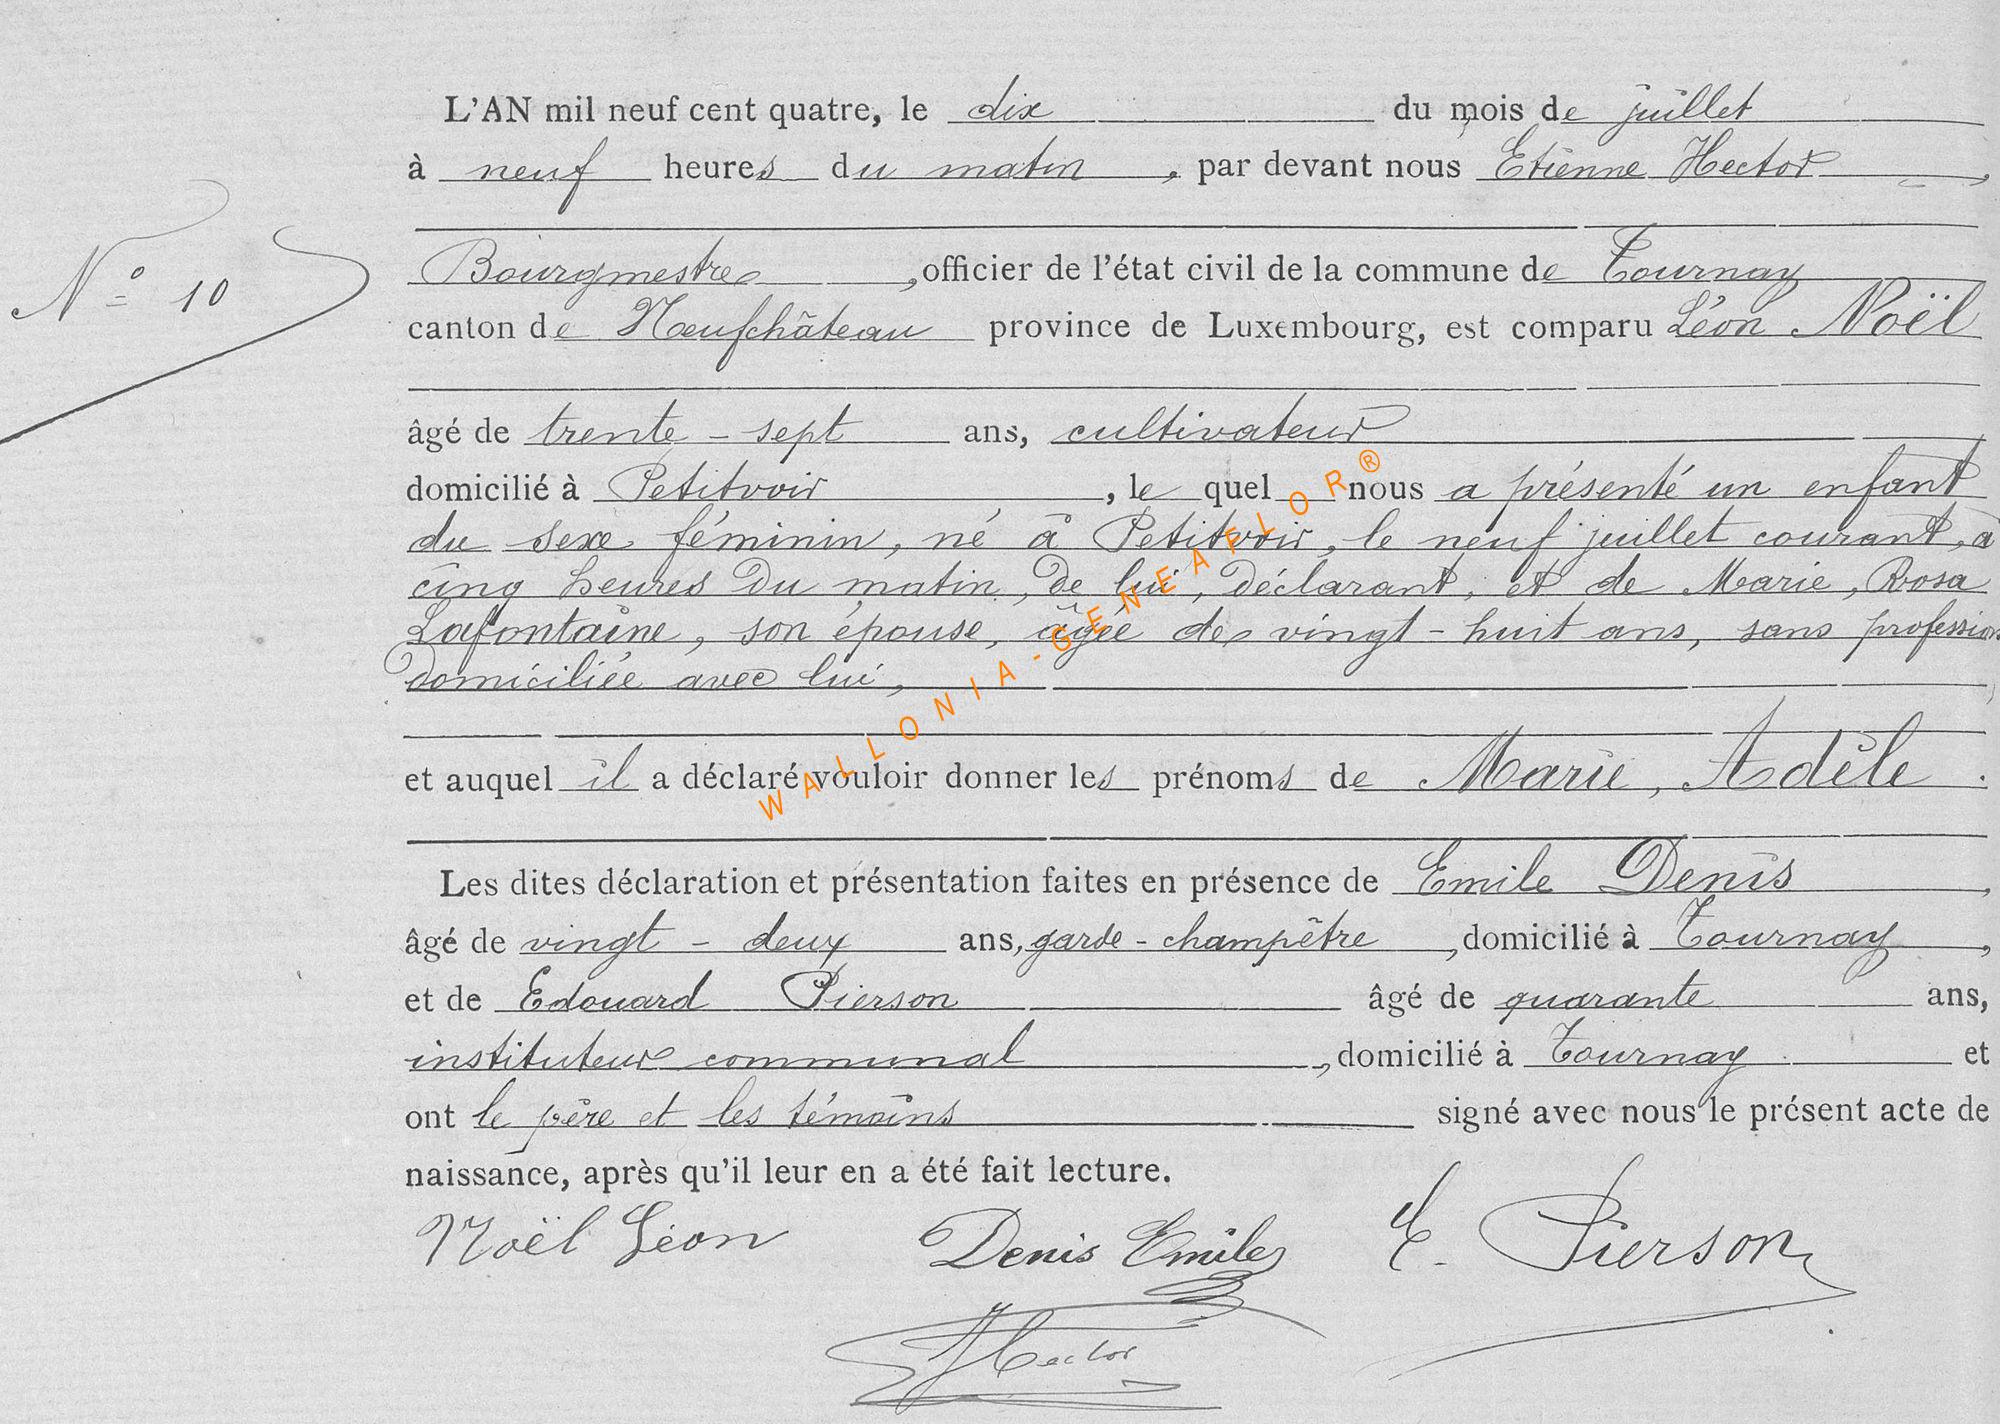 L'AN mil neuf cent quatre, le dix du mois de juillet
à neuf heures du matin, par devant nous Etienne Hector,
Bourgmestre, officier de l'état civil de la commune de Tournay
N° 10
canton de Neufchâteau province de Luxembourg, est comparu Léon Noël
âgé de trente-sept ans, cultivateur
domicilié à Petitvoir, le quel nous a présenté un enfant
du sexe féminin, né à Petitvoir, le neuf juillet courant, à
cinq heures du matin, de lui, déclarant, et de Marie, Rosa
Lafontaine, son épouse, âgée de vingt-huit ans, sans profession
domiciliée avec lui,
WALLONIA-GENEAFLOR®
et auquel il a déclaré vouloir donner les prénoms de Marie, Adèle.
Les dites déclaration et présentation faites en présence de Emile Denis,
âgé de vingt-deux ans, garde-champêtre, domicilié à Tournay,
et de Edouard Pierson âgé de quarante ans,
instituteur communal, domicilié à Tournay et
ont le père et les témoins signé avec nous le présent acte de
naissance, après qu'il leur en a été fait lecture.
Noël Léon Denis Emile E. Pierson
Hector